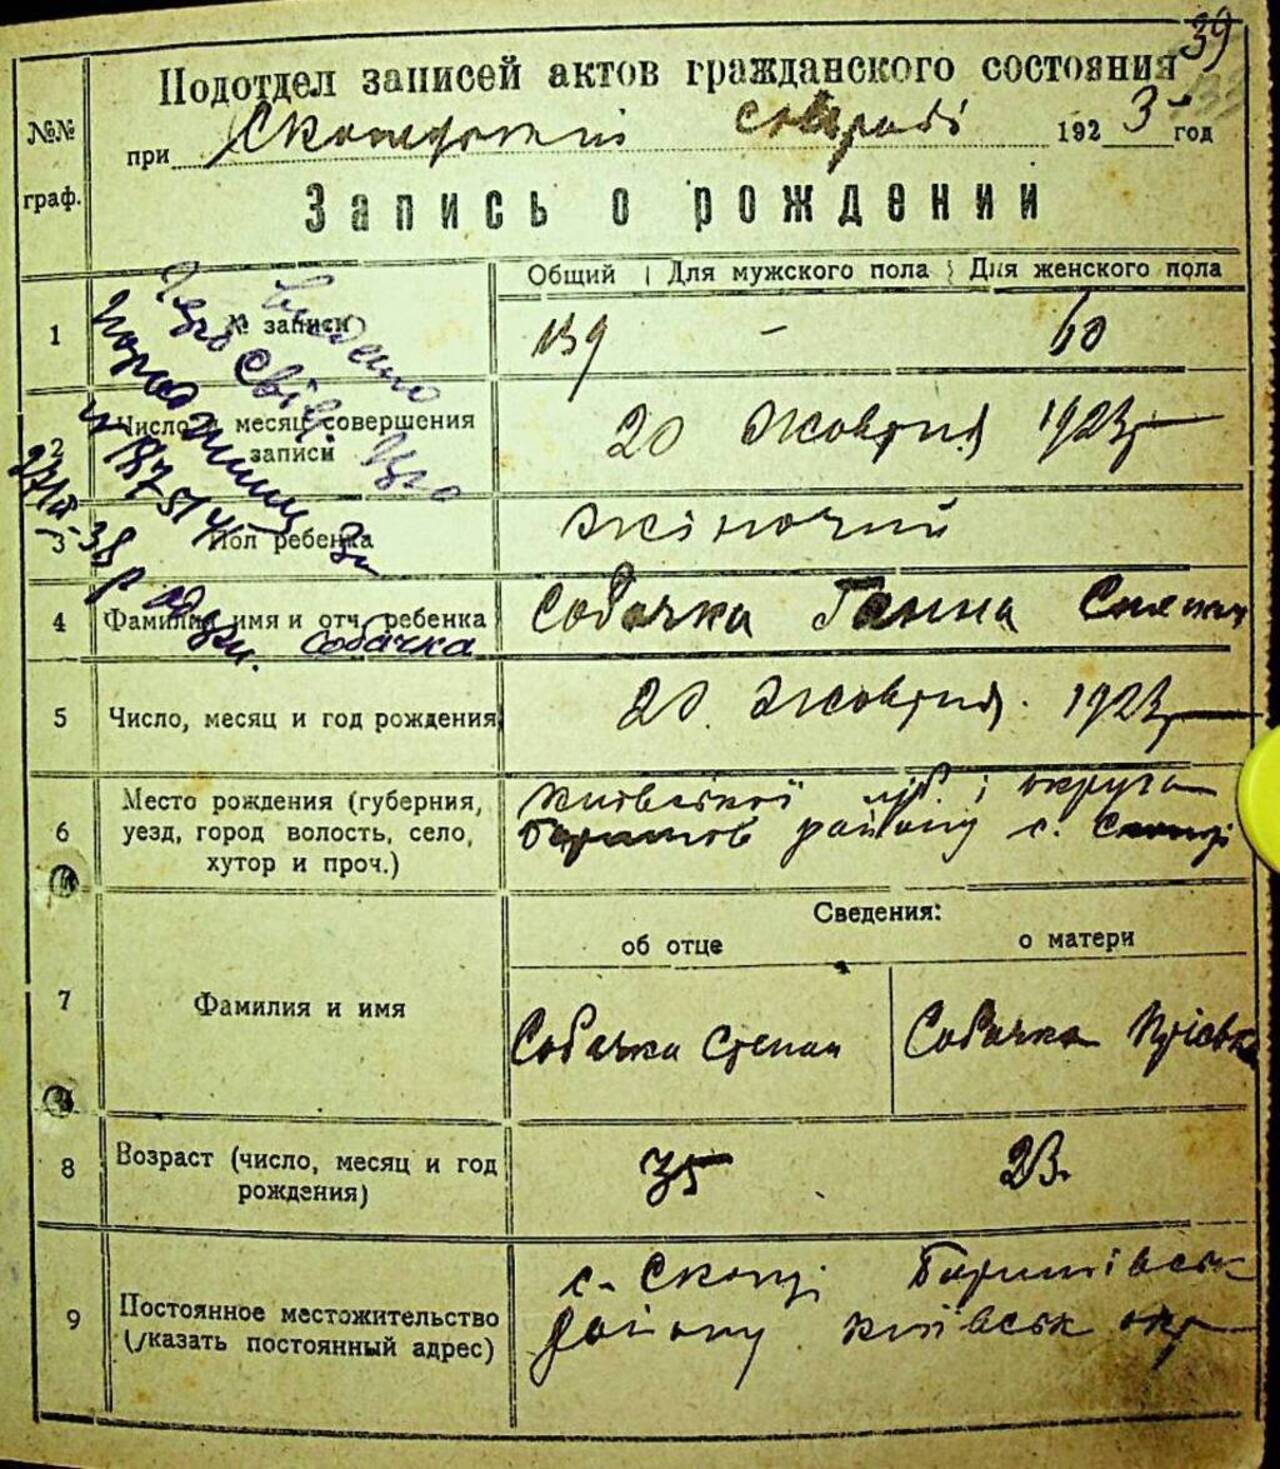 39
Подотдел записей актов гражданского состояния
при сельраді 1923 год
№№ граф.
Запись о рождении
Общий Для мужского пола Для женского пола
1 № записи 139 - 60
2 Число и месяц совершения записи 20 Жовтня 1923
3 Пол ребенка жіночий
4 Фамилия, имя и отч. ребенка Собачка Ганна
5 Число, месяц и год рождения 20 Жовтня 1923
6 Место рождения (губерния, уезд, город волость, село, хутор и проч.)
Київської губ. і округи
району с.
Сведения:
об отце о матери
7 Фамилия и имя Собачка Степан Собачка
8 Возраст (число, месяц и год рождения) 35 23
9 Постоянное местожительство (указать постоянный адрес)
с. Скопці Баришівськ
району київськ окр
видано
про
за
38 р
Собачка